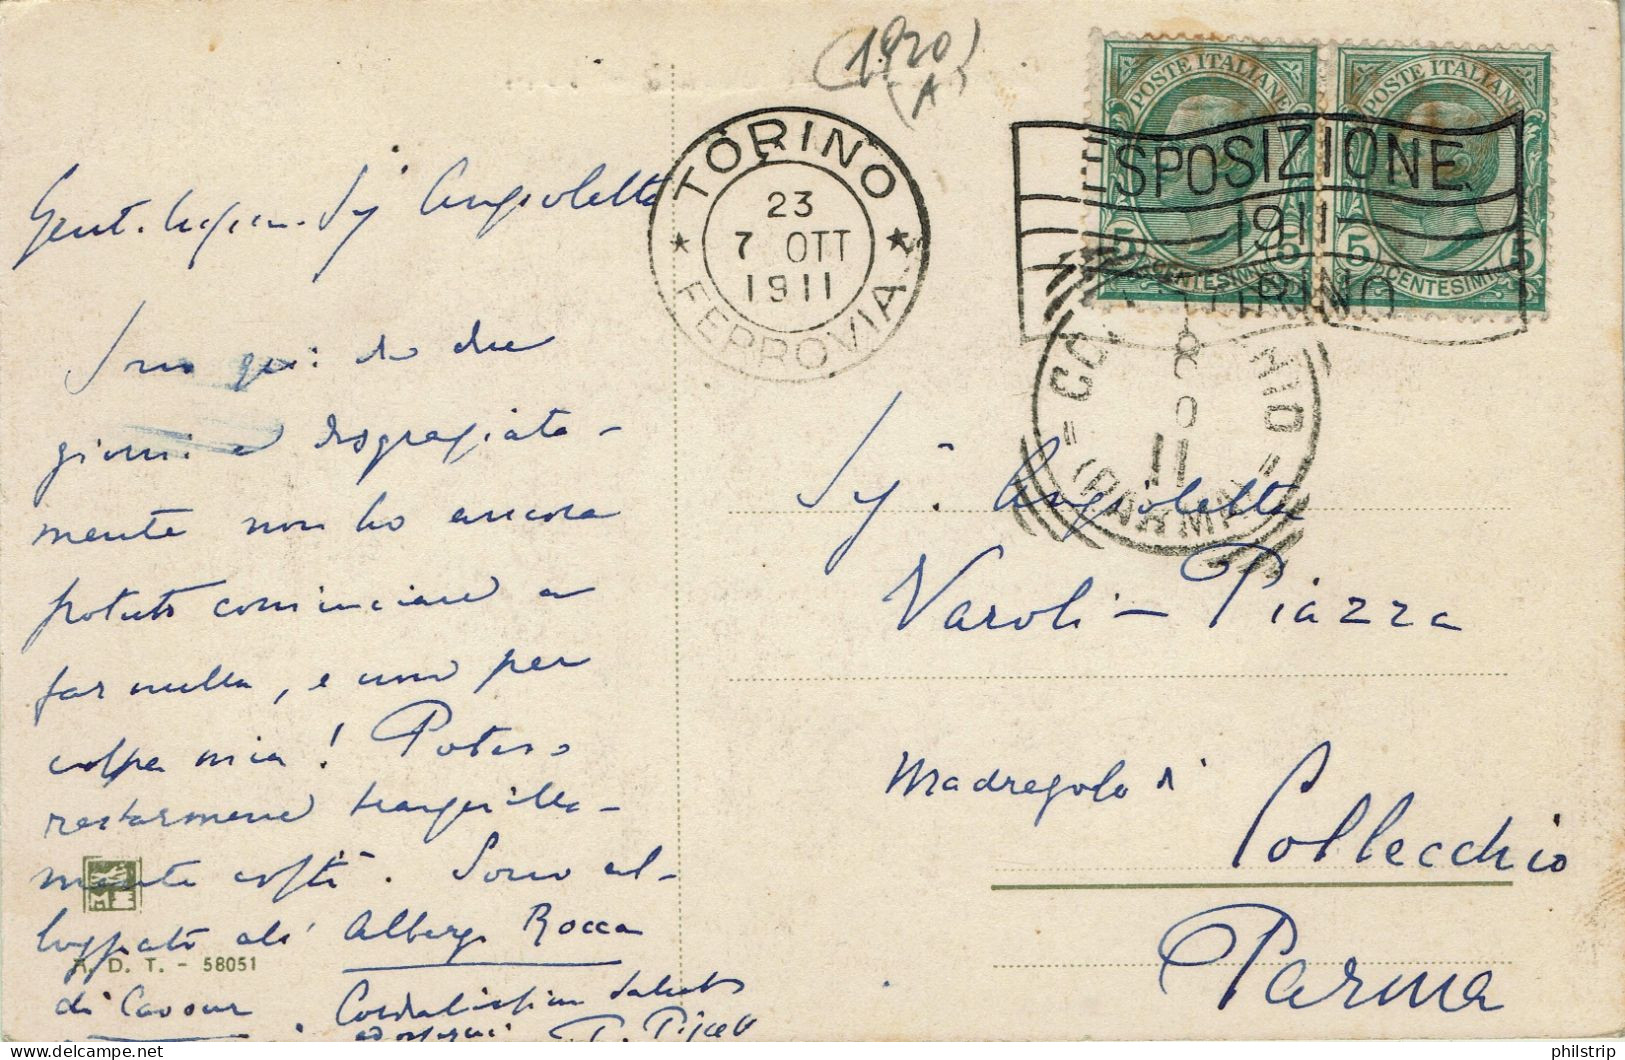 (1920)
(A)
TORINO
23
7 OTT
1911
FERROVIA
POSTE ITALIANE
5 CENTESIMI 5
POSTE ITALIANE
5 CENTESIMI 5
ESPOSIZIONE
1911
TORINO
(PARMA)
11
Gent. Sig. Angioletta
Sono qui da due
giorni e disgraziata-
mente non ho ancora
potuto cominciare a
far nulla, e non per
colpa mia! Potevo
restarmene tranquilla-
mente costì. Sono al-
loggiato all' Albergo Rocca
di Cavour. Cordialissimi saluti
ed ossequi
Sig. Angioletta
Varoli - Piazza
Madregolo di
Collecchio
Parma
A. D. T. - 58051
philstrip.com